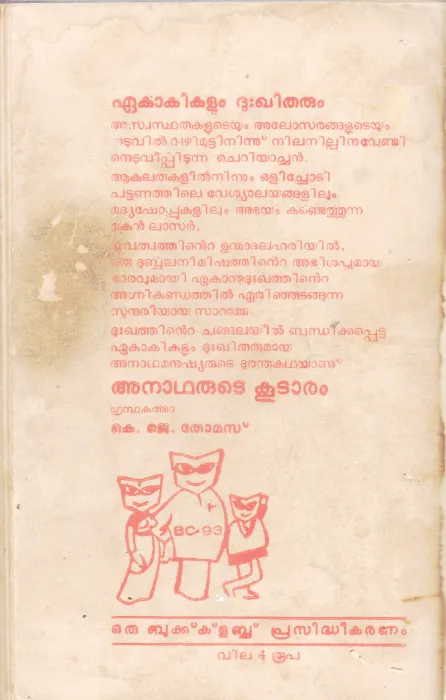 ഏകാകികളും ദുഃഖിതരും
അസ്വസ്ഥതകളുടെയും അലോസരങ്ങളുടെയും
നടുവിൽ വഴിമുട്ടിനിന്ന് നിലനില്പിനുവേണ്ടി
നെടുവീപ്പിടുന്ന ചെറിയാച്ചൻ.
ആകുലതകളിൽനിന്നും ഒളിച്ചോടി
പട്ടണത്തിലെ വേശ്യാലയങ്ങളിലും
മദ്യഷോപ്പുകളിലും അഭയം കണ്ടെത്തുന്ന
മകൻ ലാസർ.
യുവത്വത്തിന്റെ ഉന്മാദലഹരിയിൽ,
ഒരു ദുർബ്ബലനിമിഷത്തിന്റെ അഭിശപ്തമായ
ഭാരവുമായി ഏകാന്തദുഃഖത്തിന്റെ
അഗ്നികുണ്ഡത്തിൽ എരിഞ്ഞടങ്ങുന്ന
സുന്ദരിയായ സാറാമ്മ.
ദുഃഖത്തിന്റെ ചങ്ങലയിൽ ബന്ധിക്കപ്പെട്ട
ഏകാകികളും ദുഃഖിതരുമായ
അനാഥമനുഷ്യരുടെ ദുരന്തകഥയാണ്
അനാഥരുടെ കൂടാരം
ഗ്രന്ഥകർത്താ
കെ. ജെ. തോമസ്
BC-93
ഒരു ബുക്ക്ക്ളബ്ബ് പ്രസിദ്ധീകരണം
വില 4 രൂപ